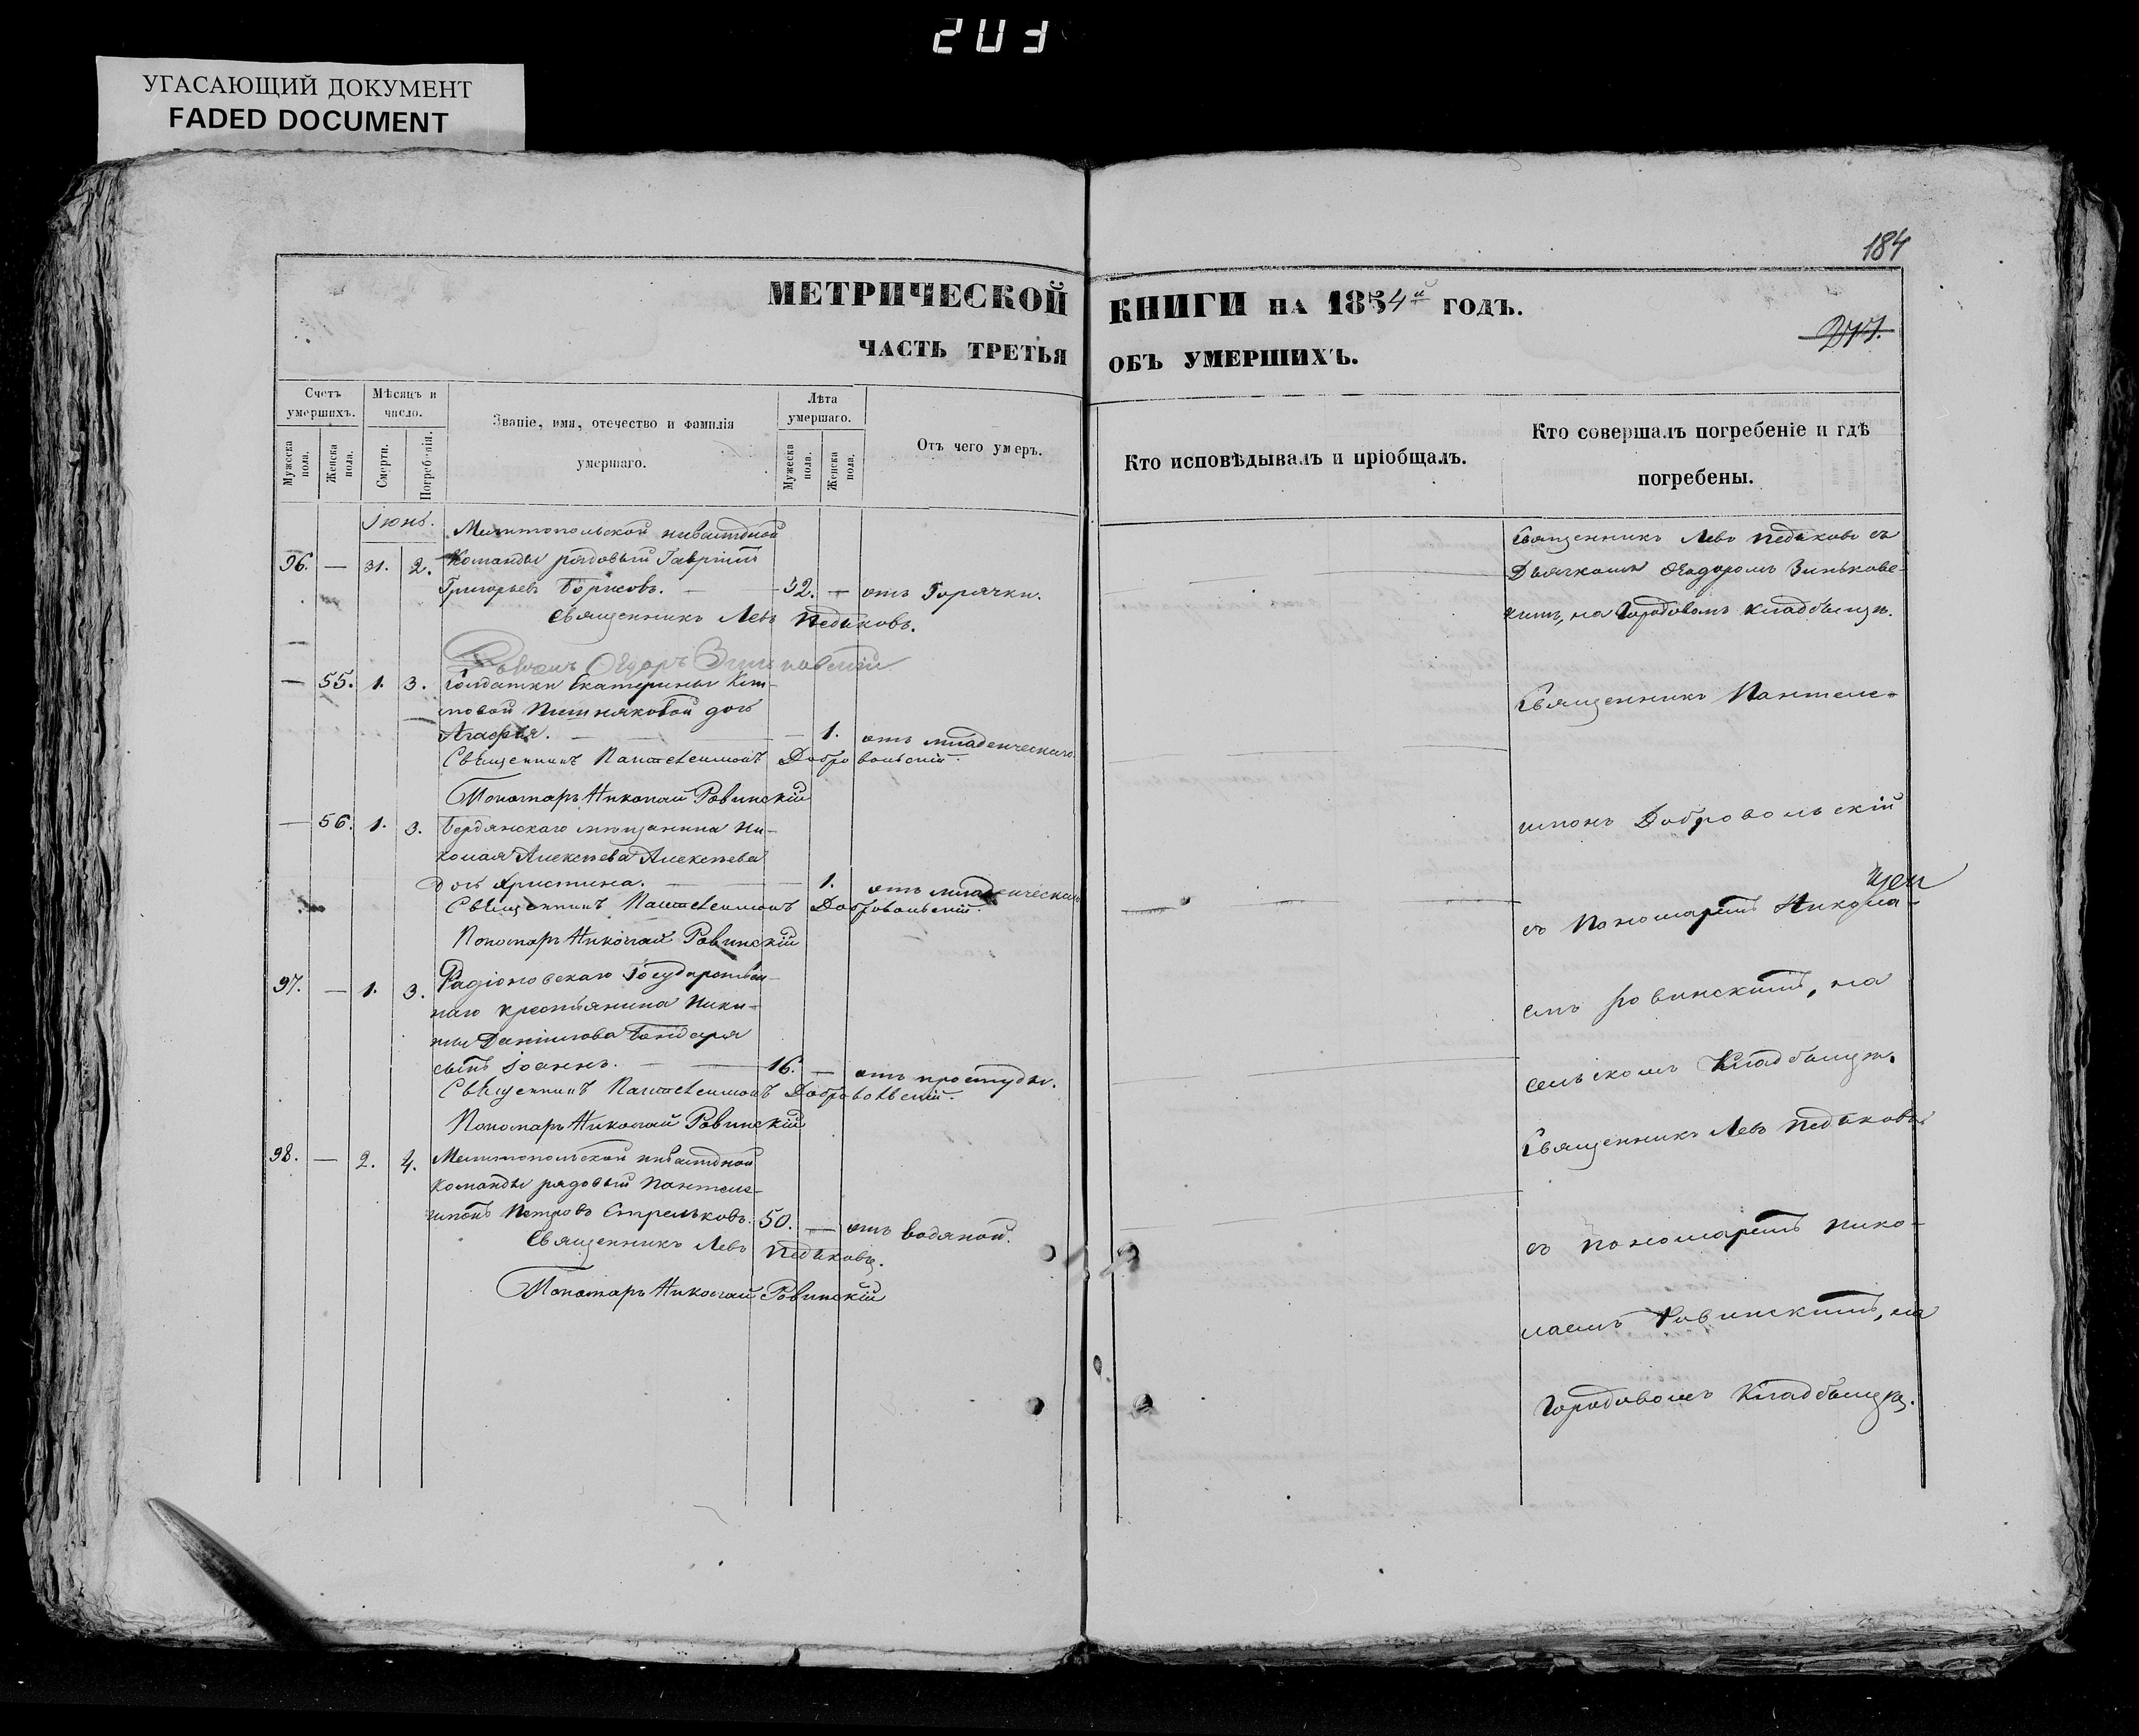 203
УГАСАЮЩИЙ ДОКУМЕНТ
FADED DOCUMENT
184
МЕТРИЧЕСКОЙ КНИГИ НА 1854й ГОДЪ.
ЧАСТЬ ТРЕТЬЯ ОБЪ УМЕРШИХЪ.
Счетъ умершихъ.
Мужеска пола.
Женска пола.
Мѣсяцъ и число.
Смерти.
Погребенія.
Званіе, имя, отечество и фамилія
умершаго.
Лѣта умершаго.
Мужеска пола.
Женска пола.
Отъ чего умеръ.
Кто исповѣдывалъ и пріобщалъ.
Кто совершалъ погребеніе и гдѣ
погребены.
Іюнь.
Мелитопольской инвалидной
96. — 31. 2. Команды рядовый Гавріилъ
Григорьевъ Борисовъ. — 32. — отъ Горячки.
Священникъ Левъ Педьковъ.
Дьячокъ Ѳедоръ Зиньковскій
— 55. 1. 3. Солдатки Екатерины
дочь
Агафія. — 1. отъ младенческаго.
Священникъ Пантелеимонъ Добровольскій.
Пономарь Николай Ровинскій
— 56. 1. 3. Бердянскаго мѣщанина Ни-
колая Алексѣева Алексѣева
дочь Христина. — 1. отъ младенческаго
Священникъ Пантелеимонъ Добровольскій.
Пономарь Николай Ровинскій
97. — 1. 3. Радіоновскаго Государствен-
наго крестьянина Ники-
ты Данилова Бондаря
сынъ Іоаннъ. — 16. — отъ простуды.
Священникъ Пантелеимонъ Добровольскій.
Пономарь Николай Ровинскій
98. — 2. 4. Мелитопольской инвалидной
Команды рядовый Пантеле-
имонъ Петровъ Стрельковъ. 50. — отъ водяной.
Священникъ Левъ Педьковъ.
Пономарь Николай Ровинскій
Священникъ Левъ Педьковъ съ
Дьячкомъ Ѳеодоромъ Зиньковс-
кимъ, на Городовомъ кладбищѣ.
Священникъ Пантеле-
имонъ Добровольскій
съ Пономаремъ Никола-
емъ Ровинскимъ, на
сельскомъ Кладбищѣ.
Священникъ Левъ Педьковъ
съ пономаремъ Нико-
лаемъ Ровинскимъ, на
Городовомъ Кладбищѣ.